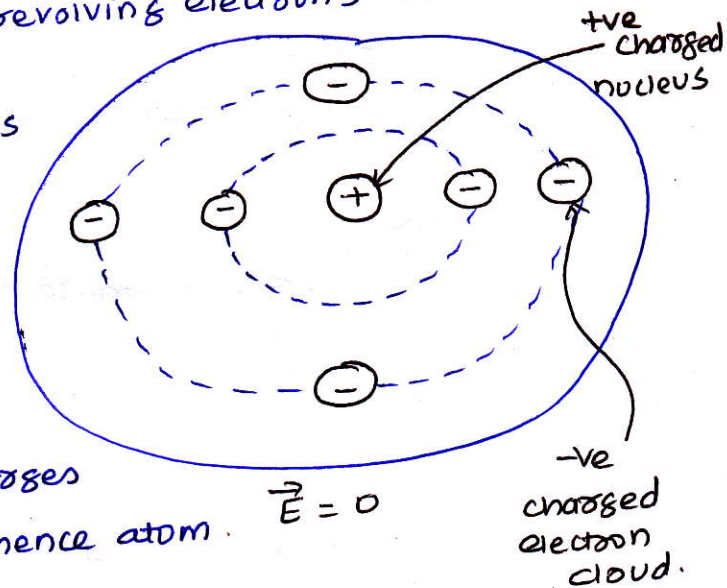 revolving electrons
s
+ve
charged
nucleus
-
- - + - -
-
rges
hence atom.
E⃗ = 0
-ve
charged
electron
cloud.